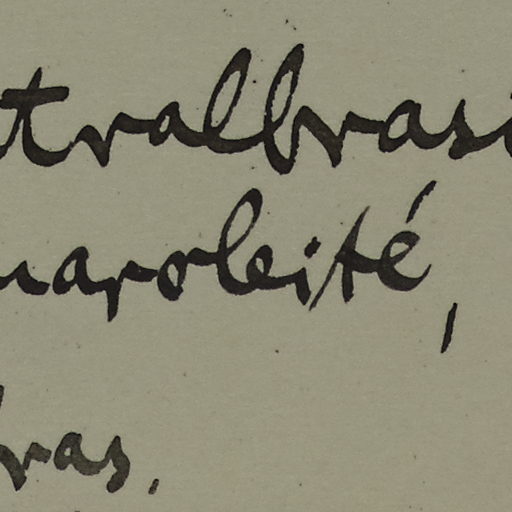 tralbrasi
uaroleité,
bras.